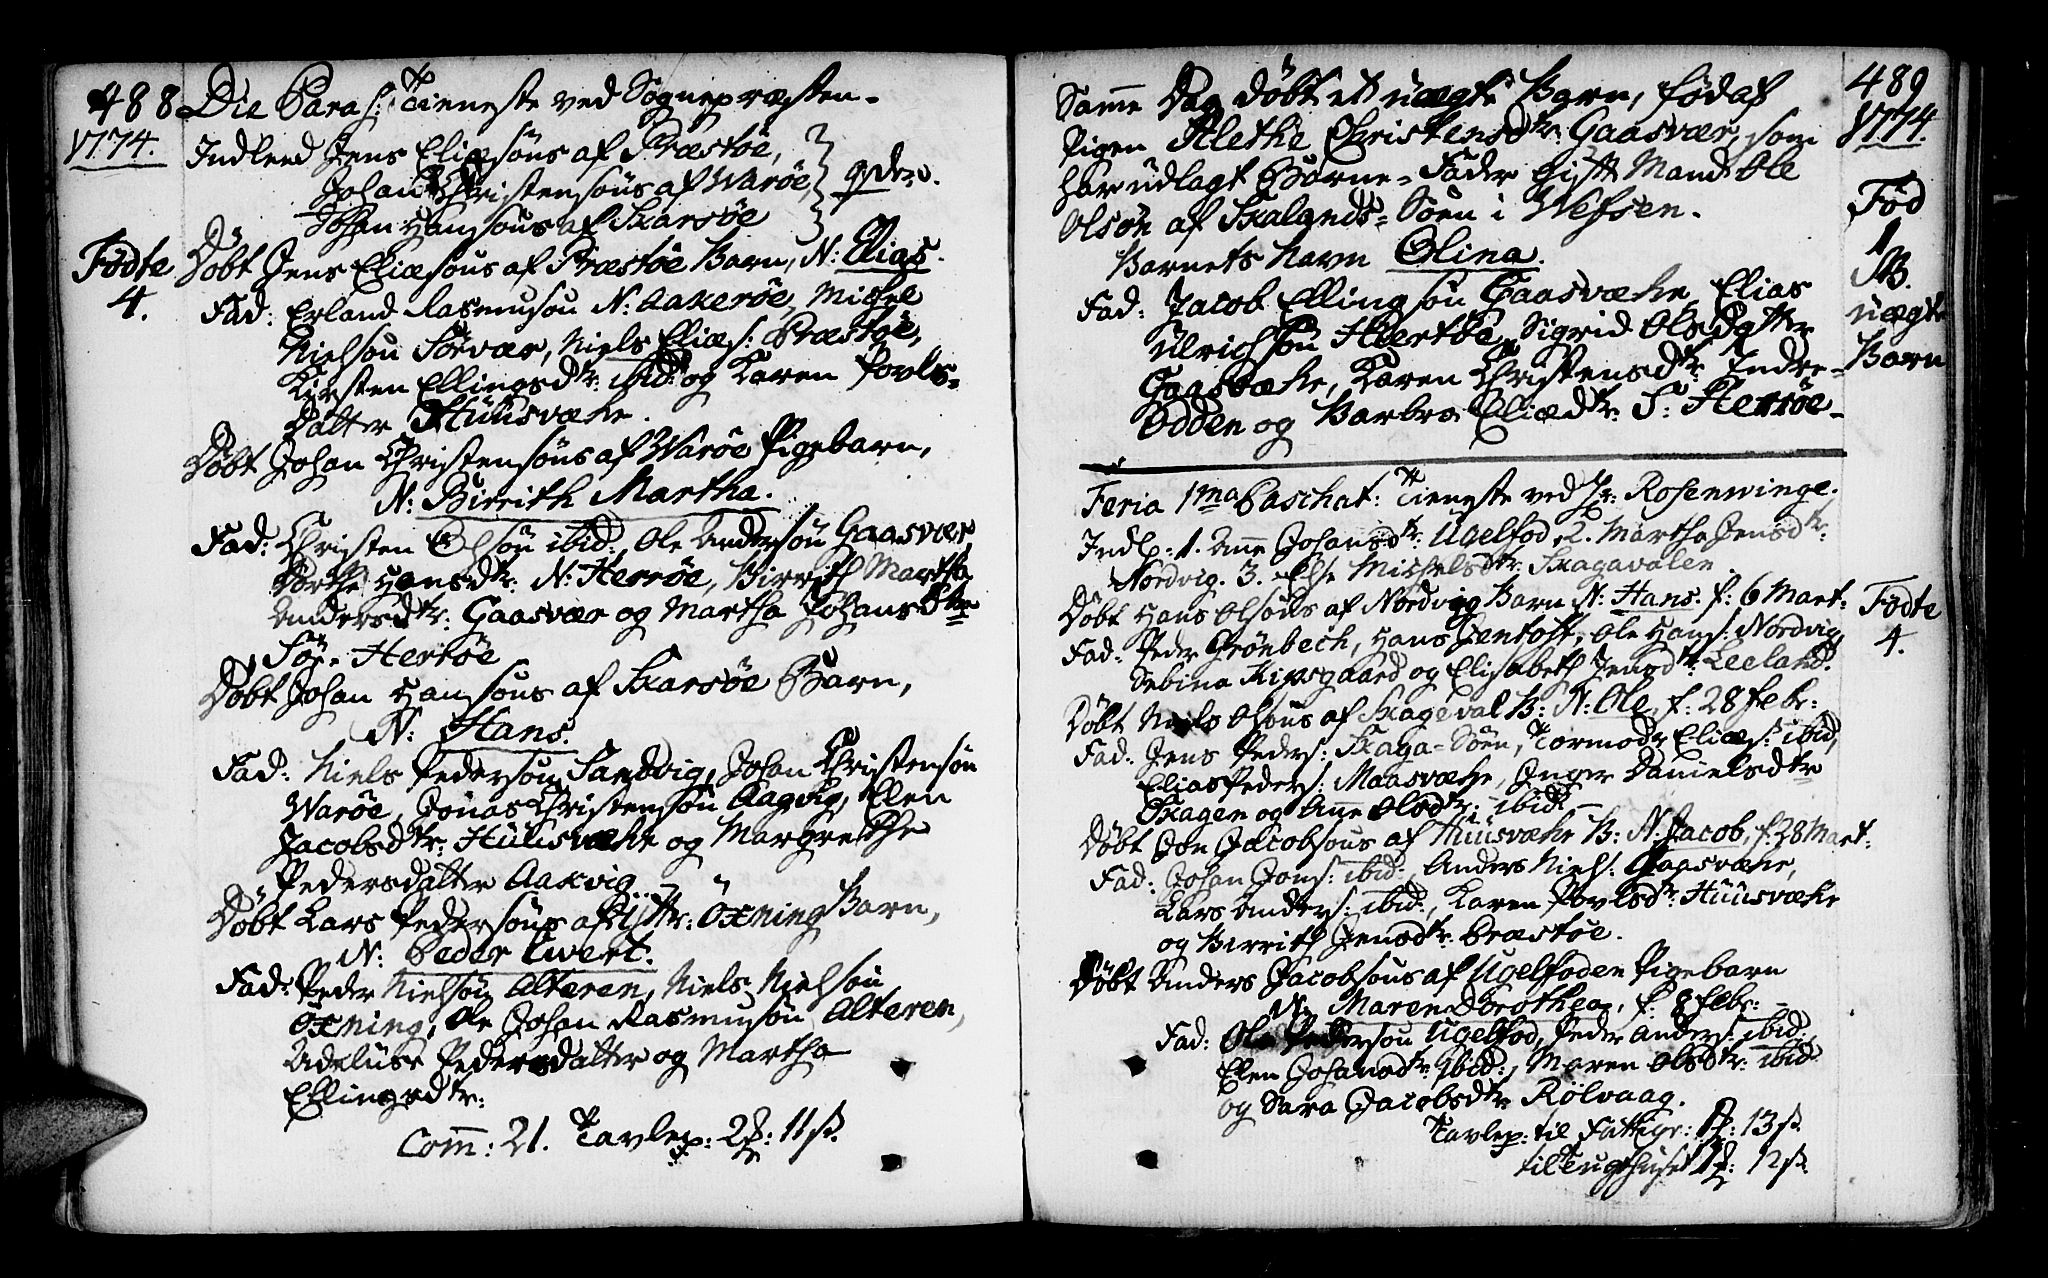 488
1774.
Die Paras: Tieneste ved Sognepræsten.
Indleed Jens Eliæsøns af Præstøe,
Johan Christensøns af Warøe, qder.
Johan Hansøns af Skarsøe
Fødte
4.
Døbt Jens Eliæsøns af Præstøe Barn, N: Elias.
Fad: Erland Rasmusøn N: Aakerøe, Michel
Nielsøn Sørvær, Niels Eliæs: Præstøe,
Kirsten Ellingsdtr: ibid: og Karen Povls-
Datter Huusvæhr.
Døbt Johan Christensøns af Warøe Pigebarn,
N: Birrith Martha.
Fad: Christen Olsøn ibid:, Ole Andersøn Gaasvær
Dorthe Hansdtr: N: Herrøe, Birrith Martha
Andersdtr: Gaasvær og Martha Johansdtr
Sør- Hertøe
Døbt Johan Hansøns af Skarsøe Barn,
N: Hans.
Fad: Niels Pedersøn Sandvig, Johan Christensøn
Warøe, Jonas Christensøn Aagvig, Elen
Jacobsdtr: Huusvæhr og Margrethe
Pedersdatter Aakvig.
Døbt Lars Pedersøns af Yttr: Øxning Barn,
N: Peder Ewert.
Fad: Peder Nielsøn Alteren, Niels Nielsøn
Øxning, Ole Johan Rasmusøn Alteren,
Adeluse Pedersdatter og Martha
Ellingsdtr:
Com: 21. Tavlep: 2f: 11s.
489
1774.
Samme Dag døbt et uægte Barn, fød af
Pigen Alethe Christensdtr: Gaasvær, som
har udlagt Barne-Fader Gift Mand Ole
Olsøn af Skalands-Søen i Wefsen.
Barnets Navn Olina.
Fød
1
B.
uægte
Barn
Fad: Jacob Ellingsøn Gaasvæhr, Elias
Ulrichsøn Hiertøe, Sigrid Olsdatter
Gaasvæhr, Karen Christensdtr: Indre-
Odden og Barbro Eliædtr: S: Herrøe-
Feria 1ma Paschat: Tieneste ved Hr: Rosenwinge.
Indl: 1. Ane Johansdtr: Ugelfod, 2. Martha Jensdtr:
Nordvig. 3. Else Michelsdtr: Skagavalen
Fødte
4.
Døbt Hans Olsøns af Nordvig Barn N: Hans. f: 6 Mart:
Fad: Peder Grønbech, Hans Jentoft, Ole Hans: Nordvig,
Sebina Kipsgaard og Elisabeth Jensdtr: Leeland.
Døbt Niels Olsøns af Skageval B: N: Ole, f: 28 Febr:
Fad: Jens Peders: Skaga-Søen, Tormod Eliæs: ibid,
Elias Peders: Maasvæhr, Inger Danielsdtr
Skagen og Ane Olsdtr: ibid:-
Døbt Jon Jacobsøns af Huusvæhr B: N: Jacob, f: 28 Mart:
Fad: Johan Jons: ibid:, Anders Niels: Gaasvæhr,
Lars Anders: ibid:, Karen Povlsdtr: Huusvæhr
og Birrith Jensdtr: Præstøe.
Døbt Anders Jacobsøns af Ugelfoden Pigebarn
N: Maren Dorothea, f: 8 Febr: -
Fad: Ole Pedersøn Ugelfod, Peder Anders: ibid:,
Elen Johansdtr: ibid:, Maren Olsdtr: ibid
og Sara Jacobsdtr Rølvaag.
Tavlep: til Fattige: 1f: 13s.
til Tugthuset 1f: 12s.